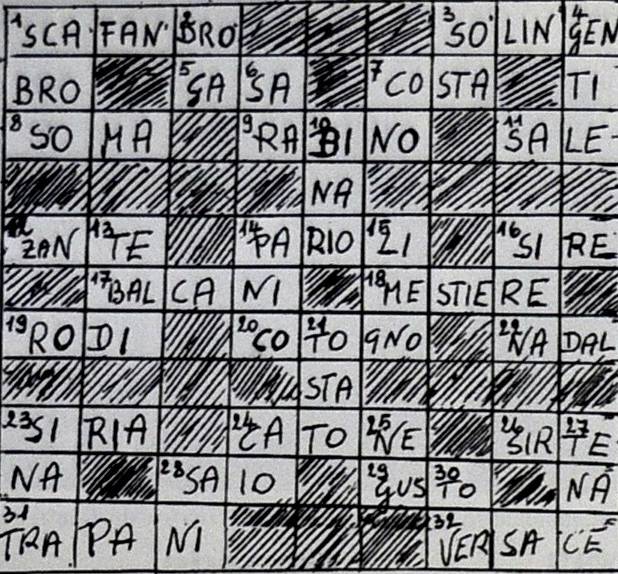 1 SCA FAN 2 BRO 3 SO LIN 4 GEN
BRO 5 GA 6 SA 7 CO STA TI
8 SO MA 9 RA 10 BI NO 11 SA LE
NA
12 ZAN 13 TE 14 PA RIO 15 LI 16 SI RE
17 BAL CA NI 18 ME STIE RE
19 RO DI 20 CO 21 TO GNO 22 NA DAL
STA
23 SI RIA 24 CA TO 25 NE 26 SIR 27 TE
NA 28 SA IO 29 GUS 30 TO NA
31 TRA PA NI 32 VER SA CE